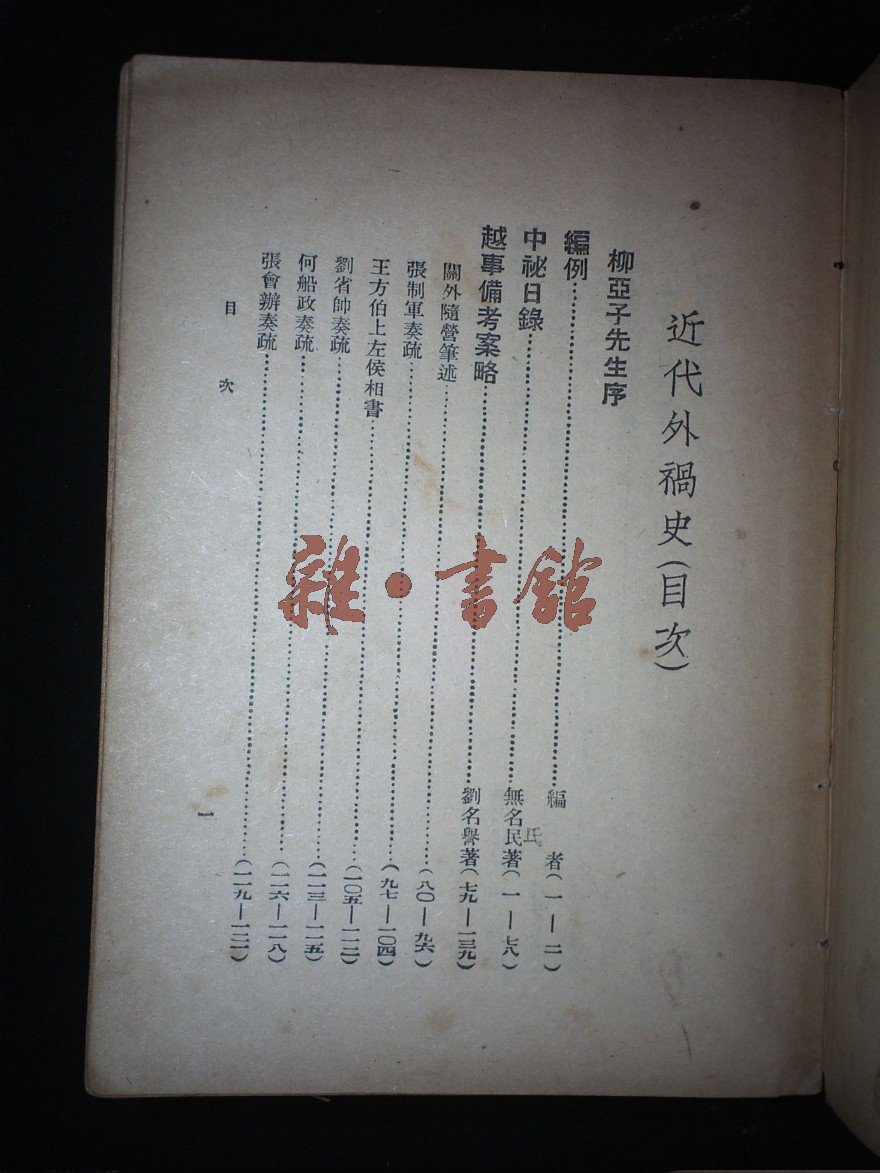 近代外禍史(目次)
柳亞子先生序
編例……編者(一—二)
中祕日錄……無名民著(一—七八)
氏
越事備考案略……劉名譽著(七九—一三九)
關外隨營筆述……(八〇—九六)
張制軍奏疏……(九七—一〇四)
王方伯上左侯相書……(一〇五—一一二)
劉省帥奏疏……(一一三—一一五)
何船政奏疏……(一一六—一一八)
張會辦奏疏……(一一九—一二一)
目次
一
雜·書館